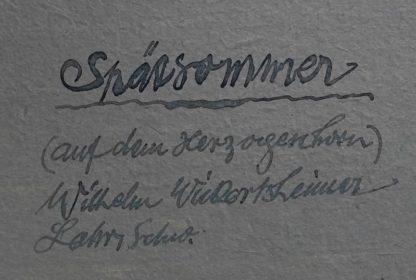 Spätsommer
(auf dem Herzogenhorn)
Wilhelm Wickertsheimer
Lahr, Schw.